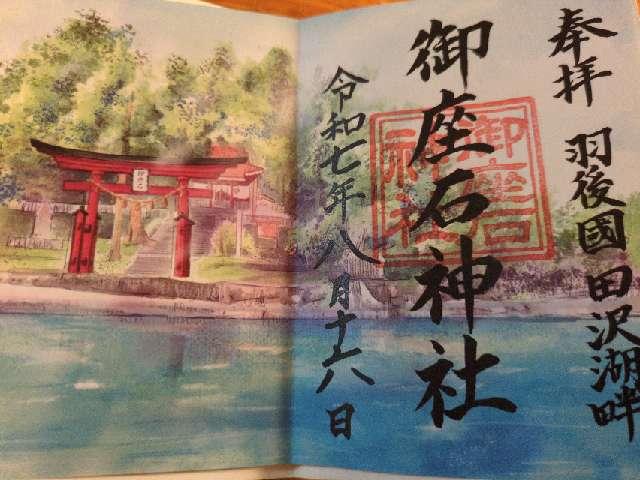 奉拝 羽後國田沢湖畔
御座石神社
令和七年八月十六日
御座石
神社